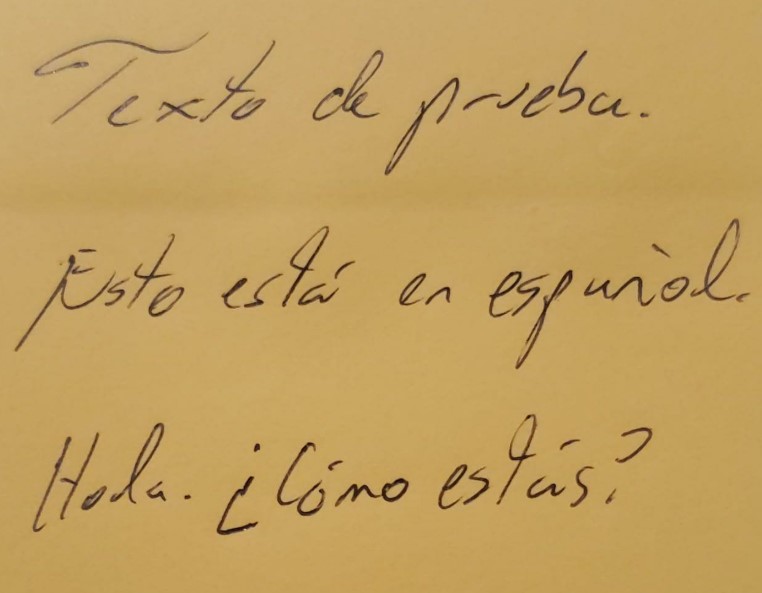 Texto de prueba.
Esto está en español.
Hola. ¿Cómo estás?